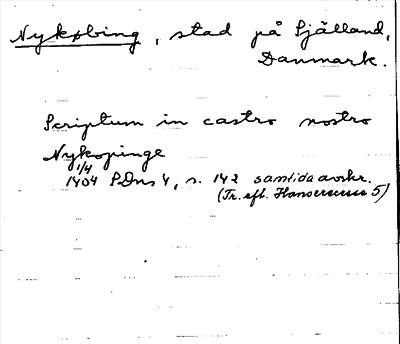 Nykøbing, stad på Själland,
Danmark.
Scriptum in castro nostro
Nykopinge
1/4
1404 PDns 4, s. 142 samtida avskr.
(Tr. eft. Hanserecesse 5)